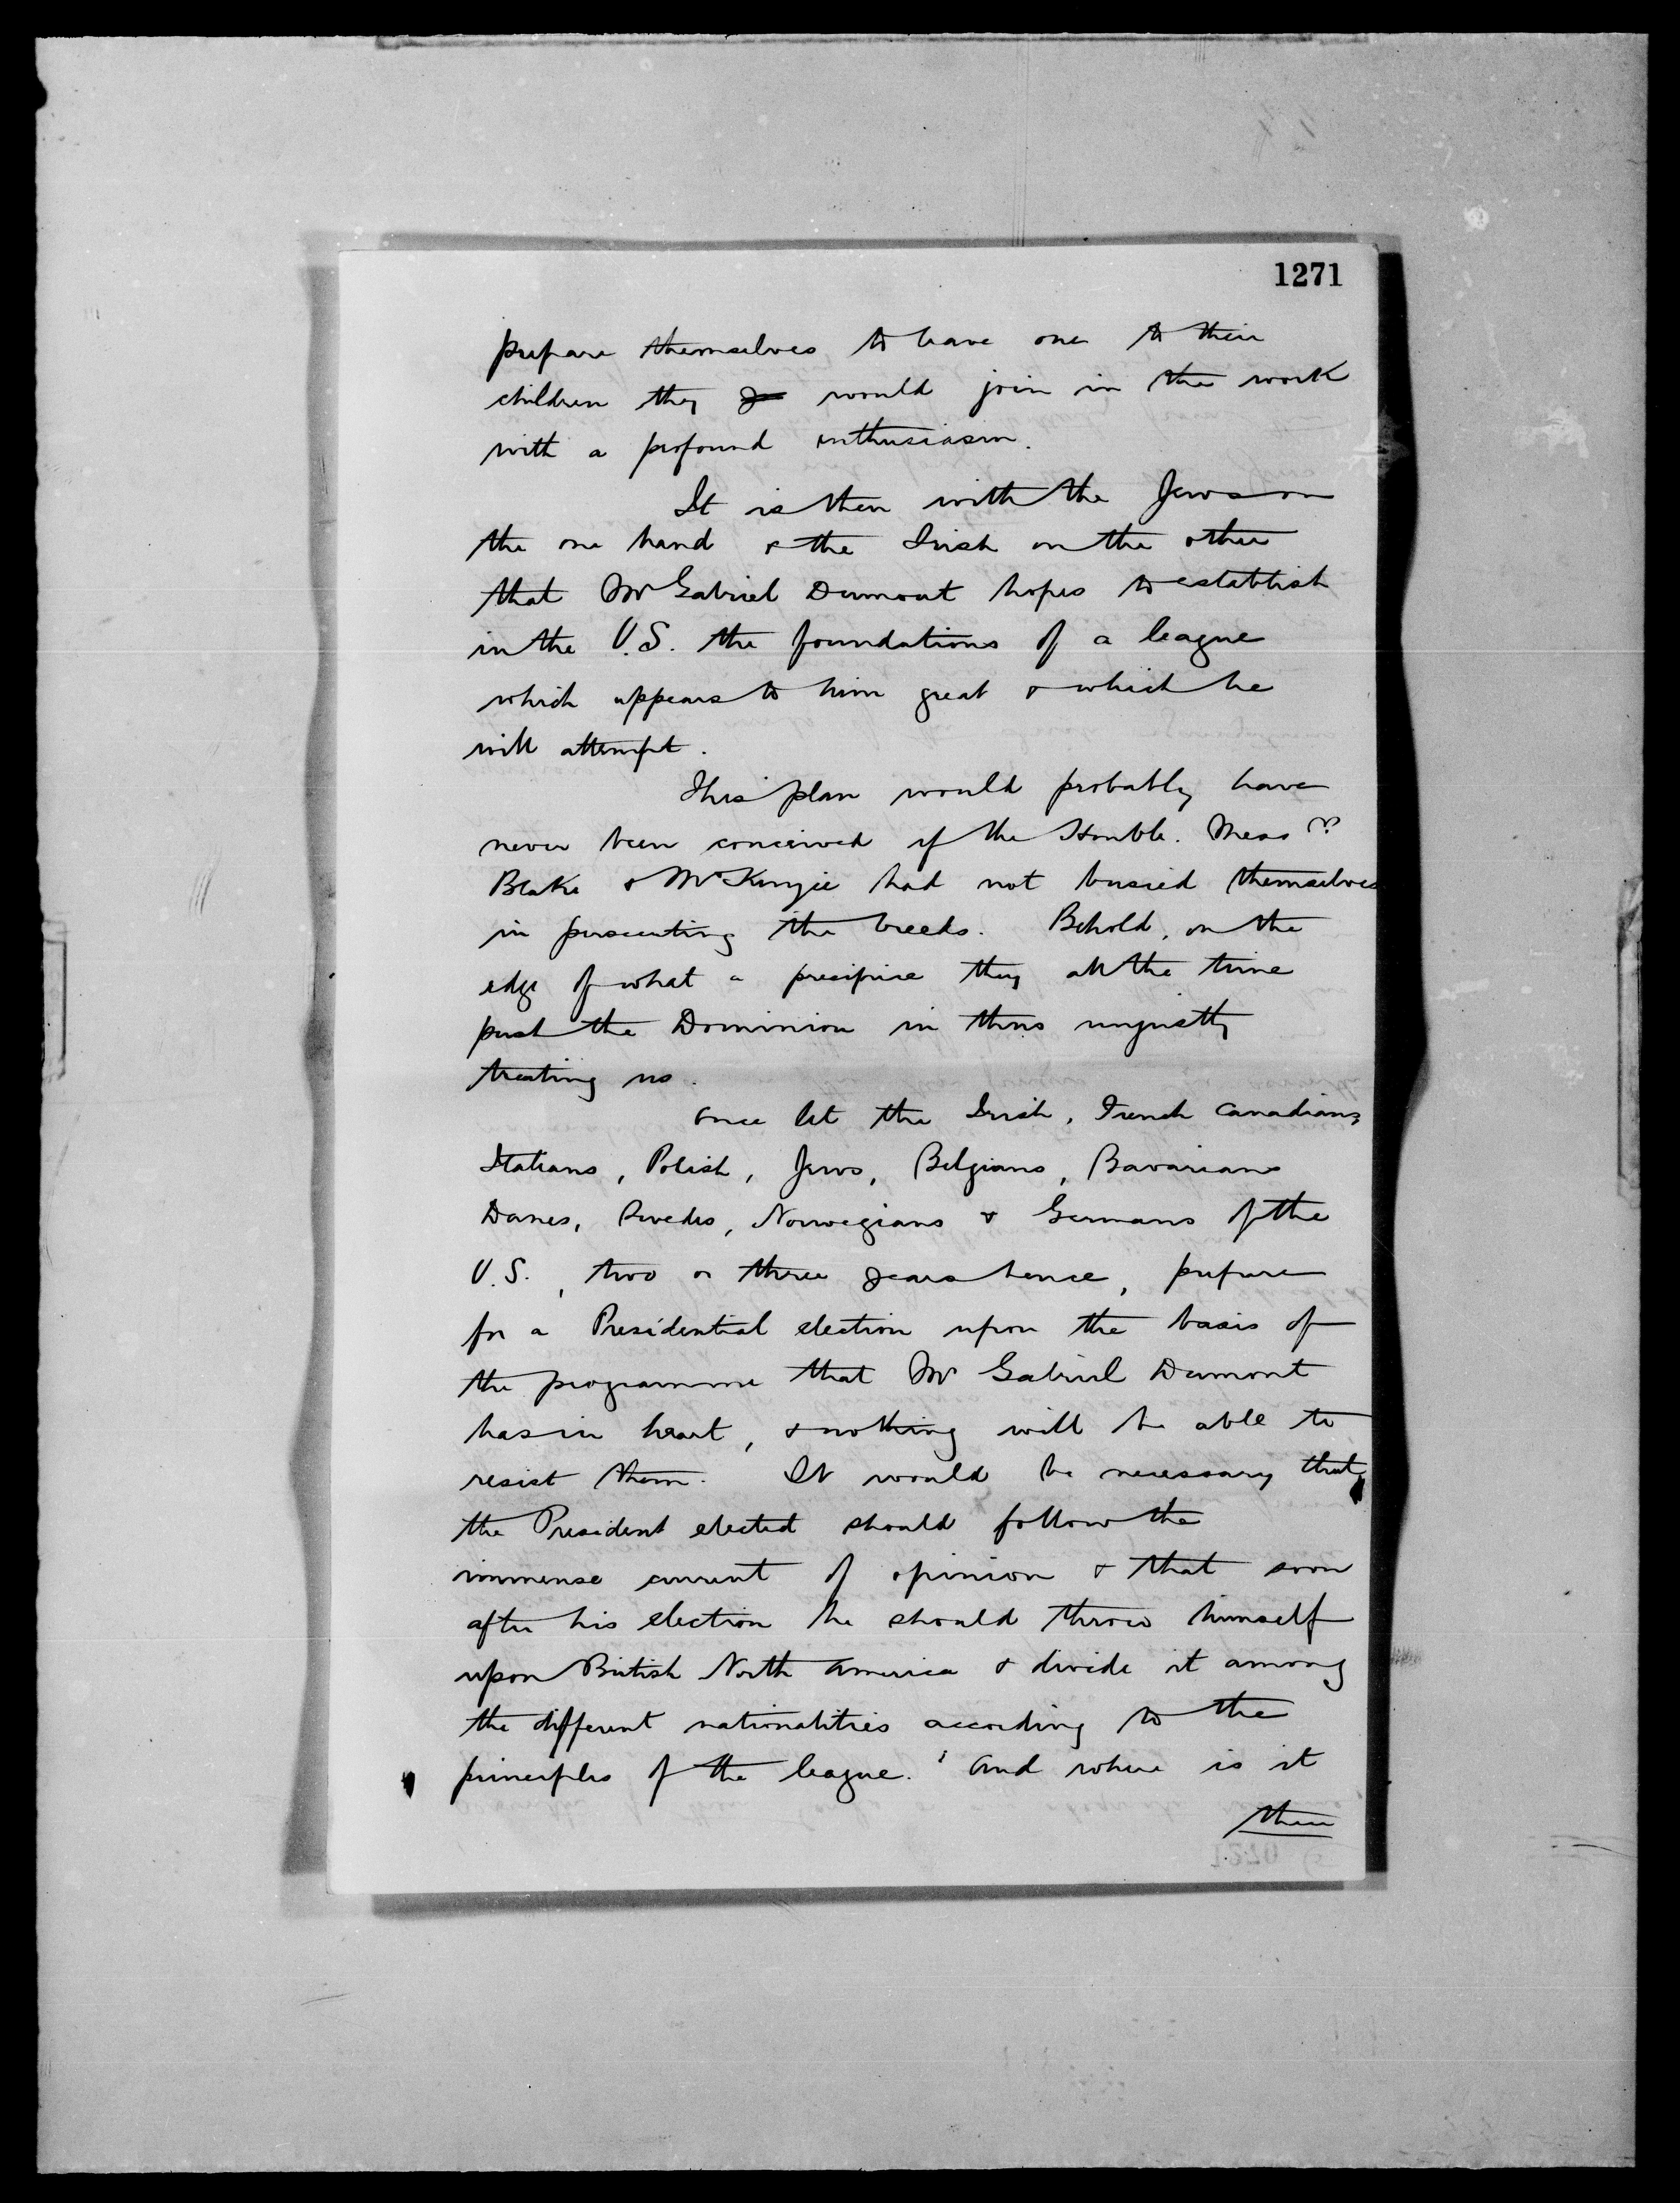 1271
prepare themselves to leave one to their
children they would join in the work
with a profound enthusiasm.
It is then with the Jews on
the one hand & the Irish on the other
that Mr Gabriel Dumont hopes to establish
in the U.S. the foundations of a league
which appears to him great & which he
will attempt.
This plan would probably have
never been conceived if the Honble. Messrs
Blake & McKenzie had not busied themselves
in persecuting the breeds. Behold, on the
edge of what a precipice they all the time
push the Dominion in thus unjustly
treating us.
Once let the Irish, French Canadians,
Italians, Polish, Jews, Belgians, Bavarians
Danes, Swedes, Norwegians & Germans of the
U.S., two or three years hence, prepare
for a Presidential election upon the basis of
the programme that Mr Gabriel Dumont
has in heart, & nothing will be able to
resist them. It would be necessary that
the President elected should follow the
immense current of opinion & that soon
after his election he should throw himself
upon British North America & divide it among
the different nationalities according to the
principles of the league. And where is it
then